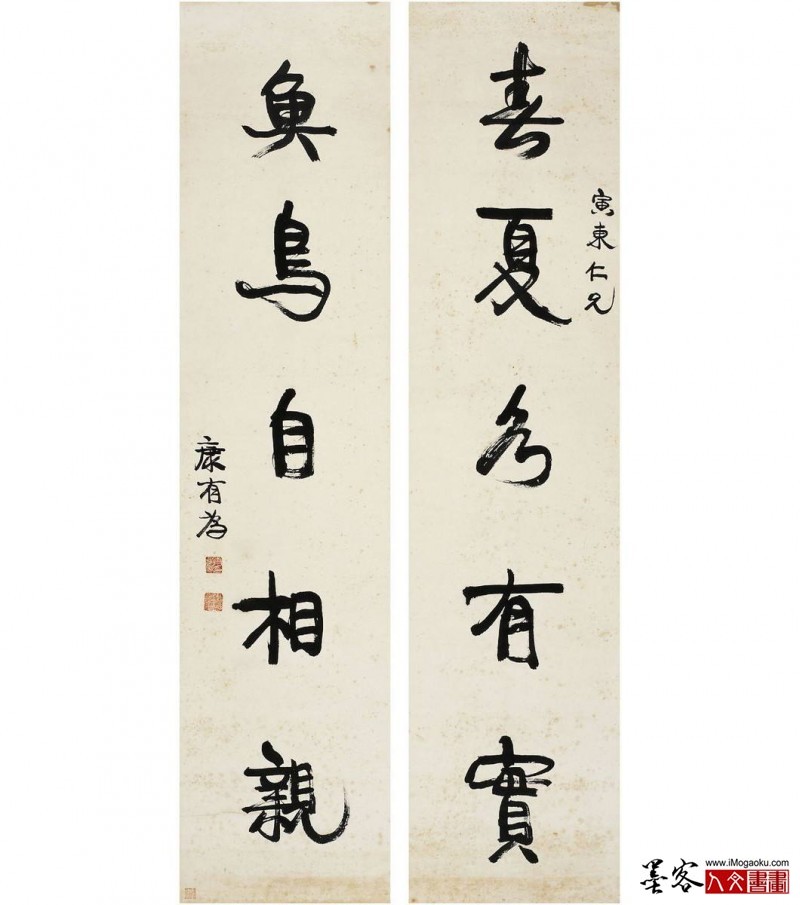 寅東仁兄
春夏各有實
魚鳥自相親
康有為
墨客
www.iMogaoku.com
人文書畫